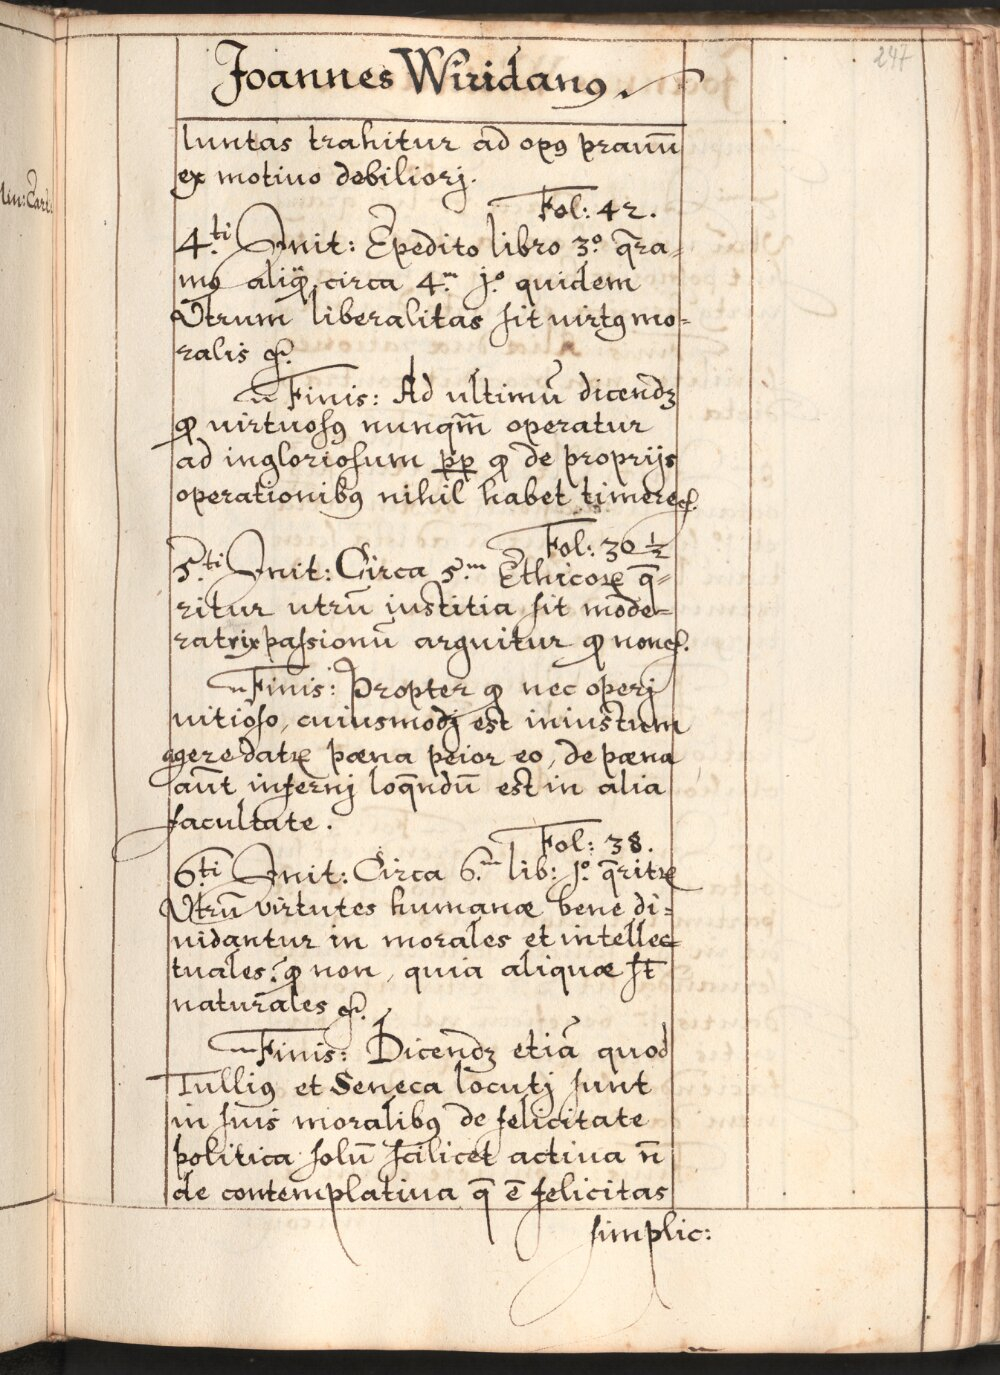 247
Joannes Wiridanꝰ.
luntas trahitur ad opꝰ prauū
ex motiuo debiliorj.
Fol: 42.
4.ti Init: Expedito libro 3.o q̄ra-
mꝰ aliq̄, circa 4.m j.o quidem
Vtrum liberalitas sit uirtꝰ mo-
ralis &.
Finis: Ad ultimū dicendꝫ
ꝙ uirtuosꝰ nunqm̄ operatur
ad ingloriosum pp ꝙ de proprijs
operationibꝰ nihil habet timere &.
Fol: 30 ½
5.ti Init: Circa 5.m Ethicoꝝ q̄-
ritur utrū iustitia sit mode-
ratrix passionū arguitur ꝙ non &.
Finis: Propter ꝙ nec operj
uitioso, cuiusmodj est iniustum
agere datꝛ pæna peior eo, de pæna
aūt infernj loq̄ndū est in alia
facultate.
Fol: 38.
6.ti Init: Circa 6.m lib: j.o q̄ritꝛ
Vtrū virtutes humanæ bene di-
uidantur in morales et intellec-
tuales: ꝙ non, quia aliquæ st̄
naturales &.
Finis: Dicendꝫ etiā quod
Tulliꝰ et Seneca locutj sunt
in suis moralibꝰ de felicitate
politica solū scilicet actiua n̄
de contemplatiua q̄ ē felicitas
simplic: